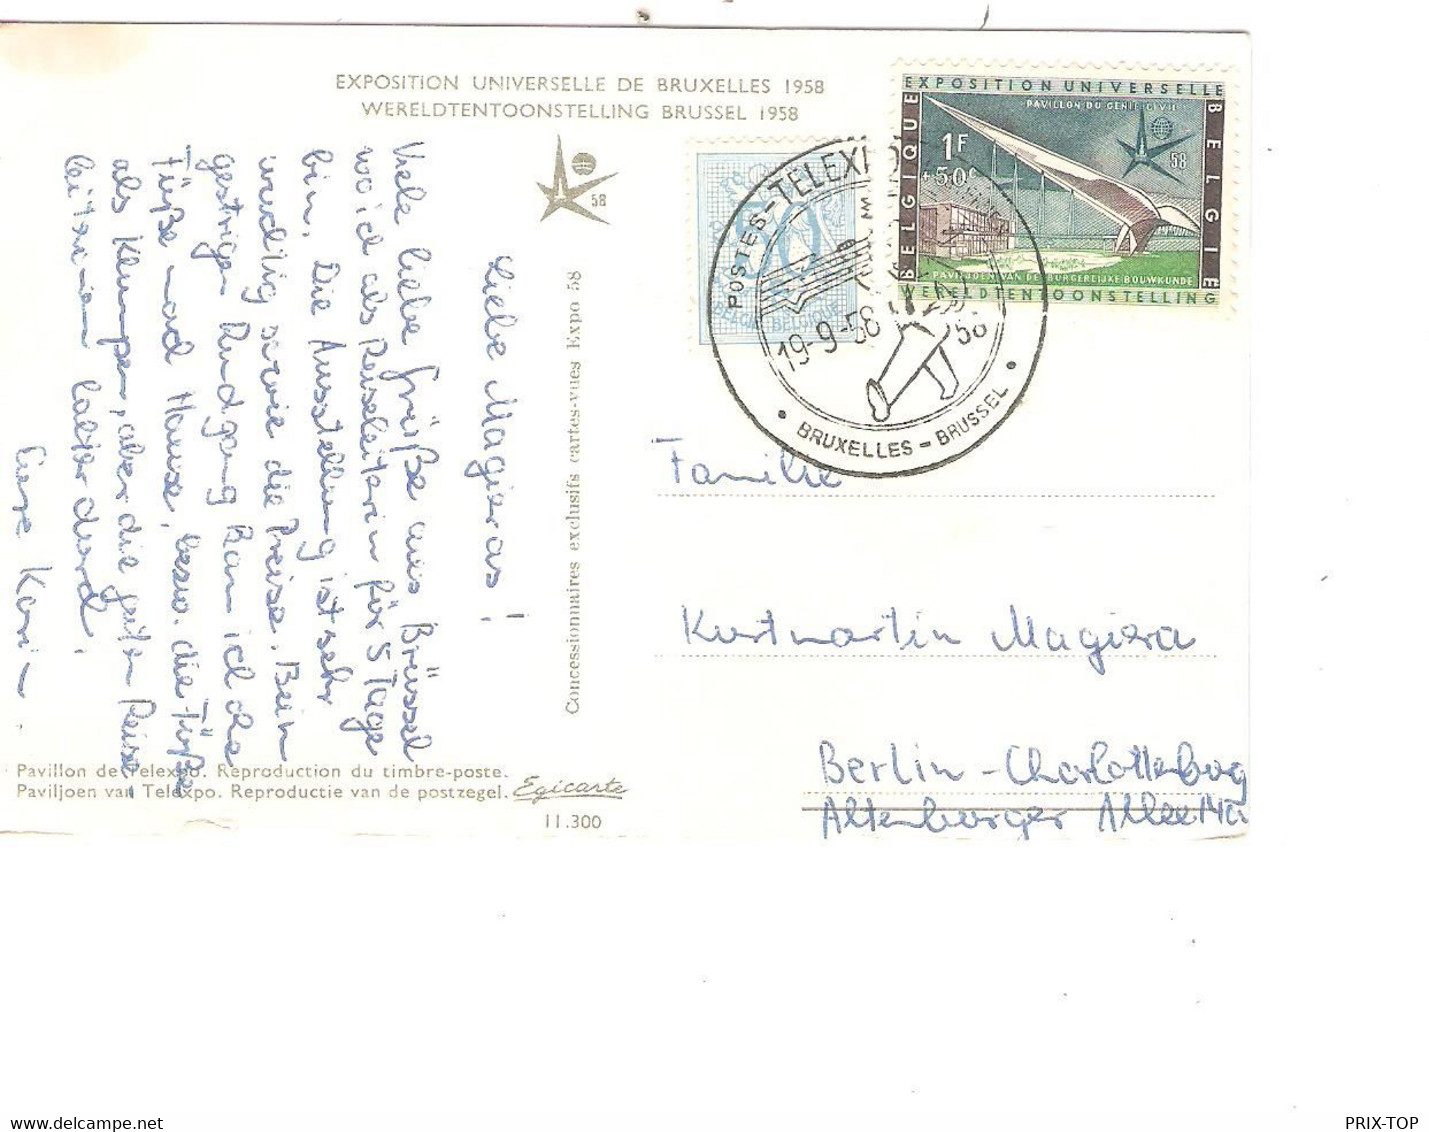 EXPOSITION UNIVERSELLE DE BRUXELLES 1958
WERELDTENTOONSTELLING BRUSSEL 1958
58
Liebe Magieras!
Viele liebe Grüße aus Brüssel
wo ich als Reiseleiterin für 5 Tage
bin. Die Ausstellung ist sehr
wuchtig sowie die Preise. Beim
gestrigen Rundgang kam ich ohne
Füße nach Hause, besw. die Füße
als Klumpen, aber die guten Reise
leiterinnen
Eure Kari
Concessionnaires exclusifs cartes-vues Expo 58
Pavillon de Telexpo. Reproduction du timbre-poste.
Paviljoen van Telexpo. Reproductie van de postzegel.
Egicarte
11.300
50
BELGIE BELGIQUE
EXPOSITION UNIVERSELLE
PAVILLON DU GENIE CIVIL
BELGIQUE
BELGIE
1F
+50c
58
PAVILJOEN VAN DE BURGERLIJKE BOUWKUNDE
WERELDTENTOONSTELLING
POSTES-TELEXPO
19-9-58
58
BRUXELLES - BRUSSEL
Familie
Kurtmartin Magiera
Berlin-Charlottenburg
Altenburger Allee 14a
PRIX-TOP